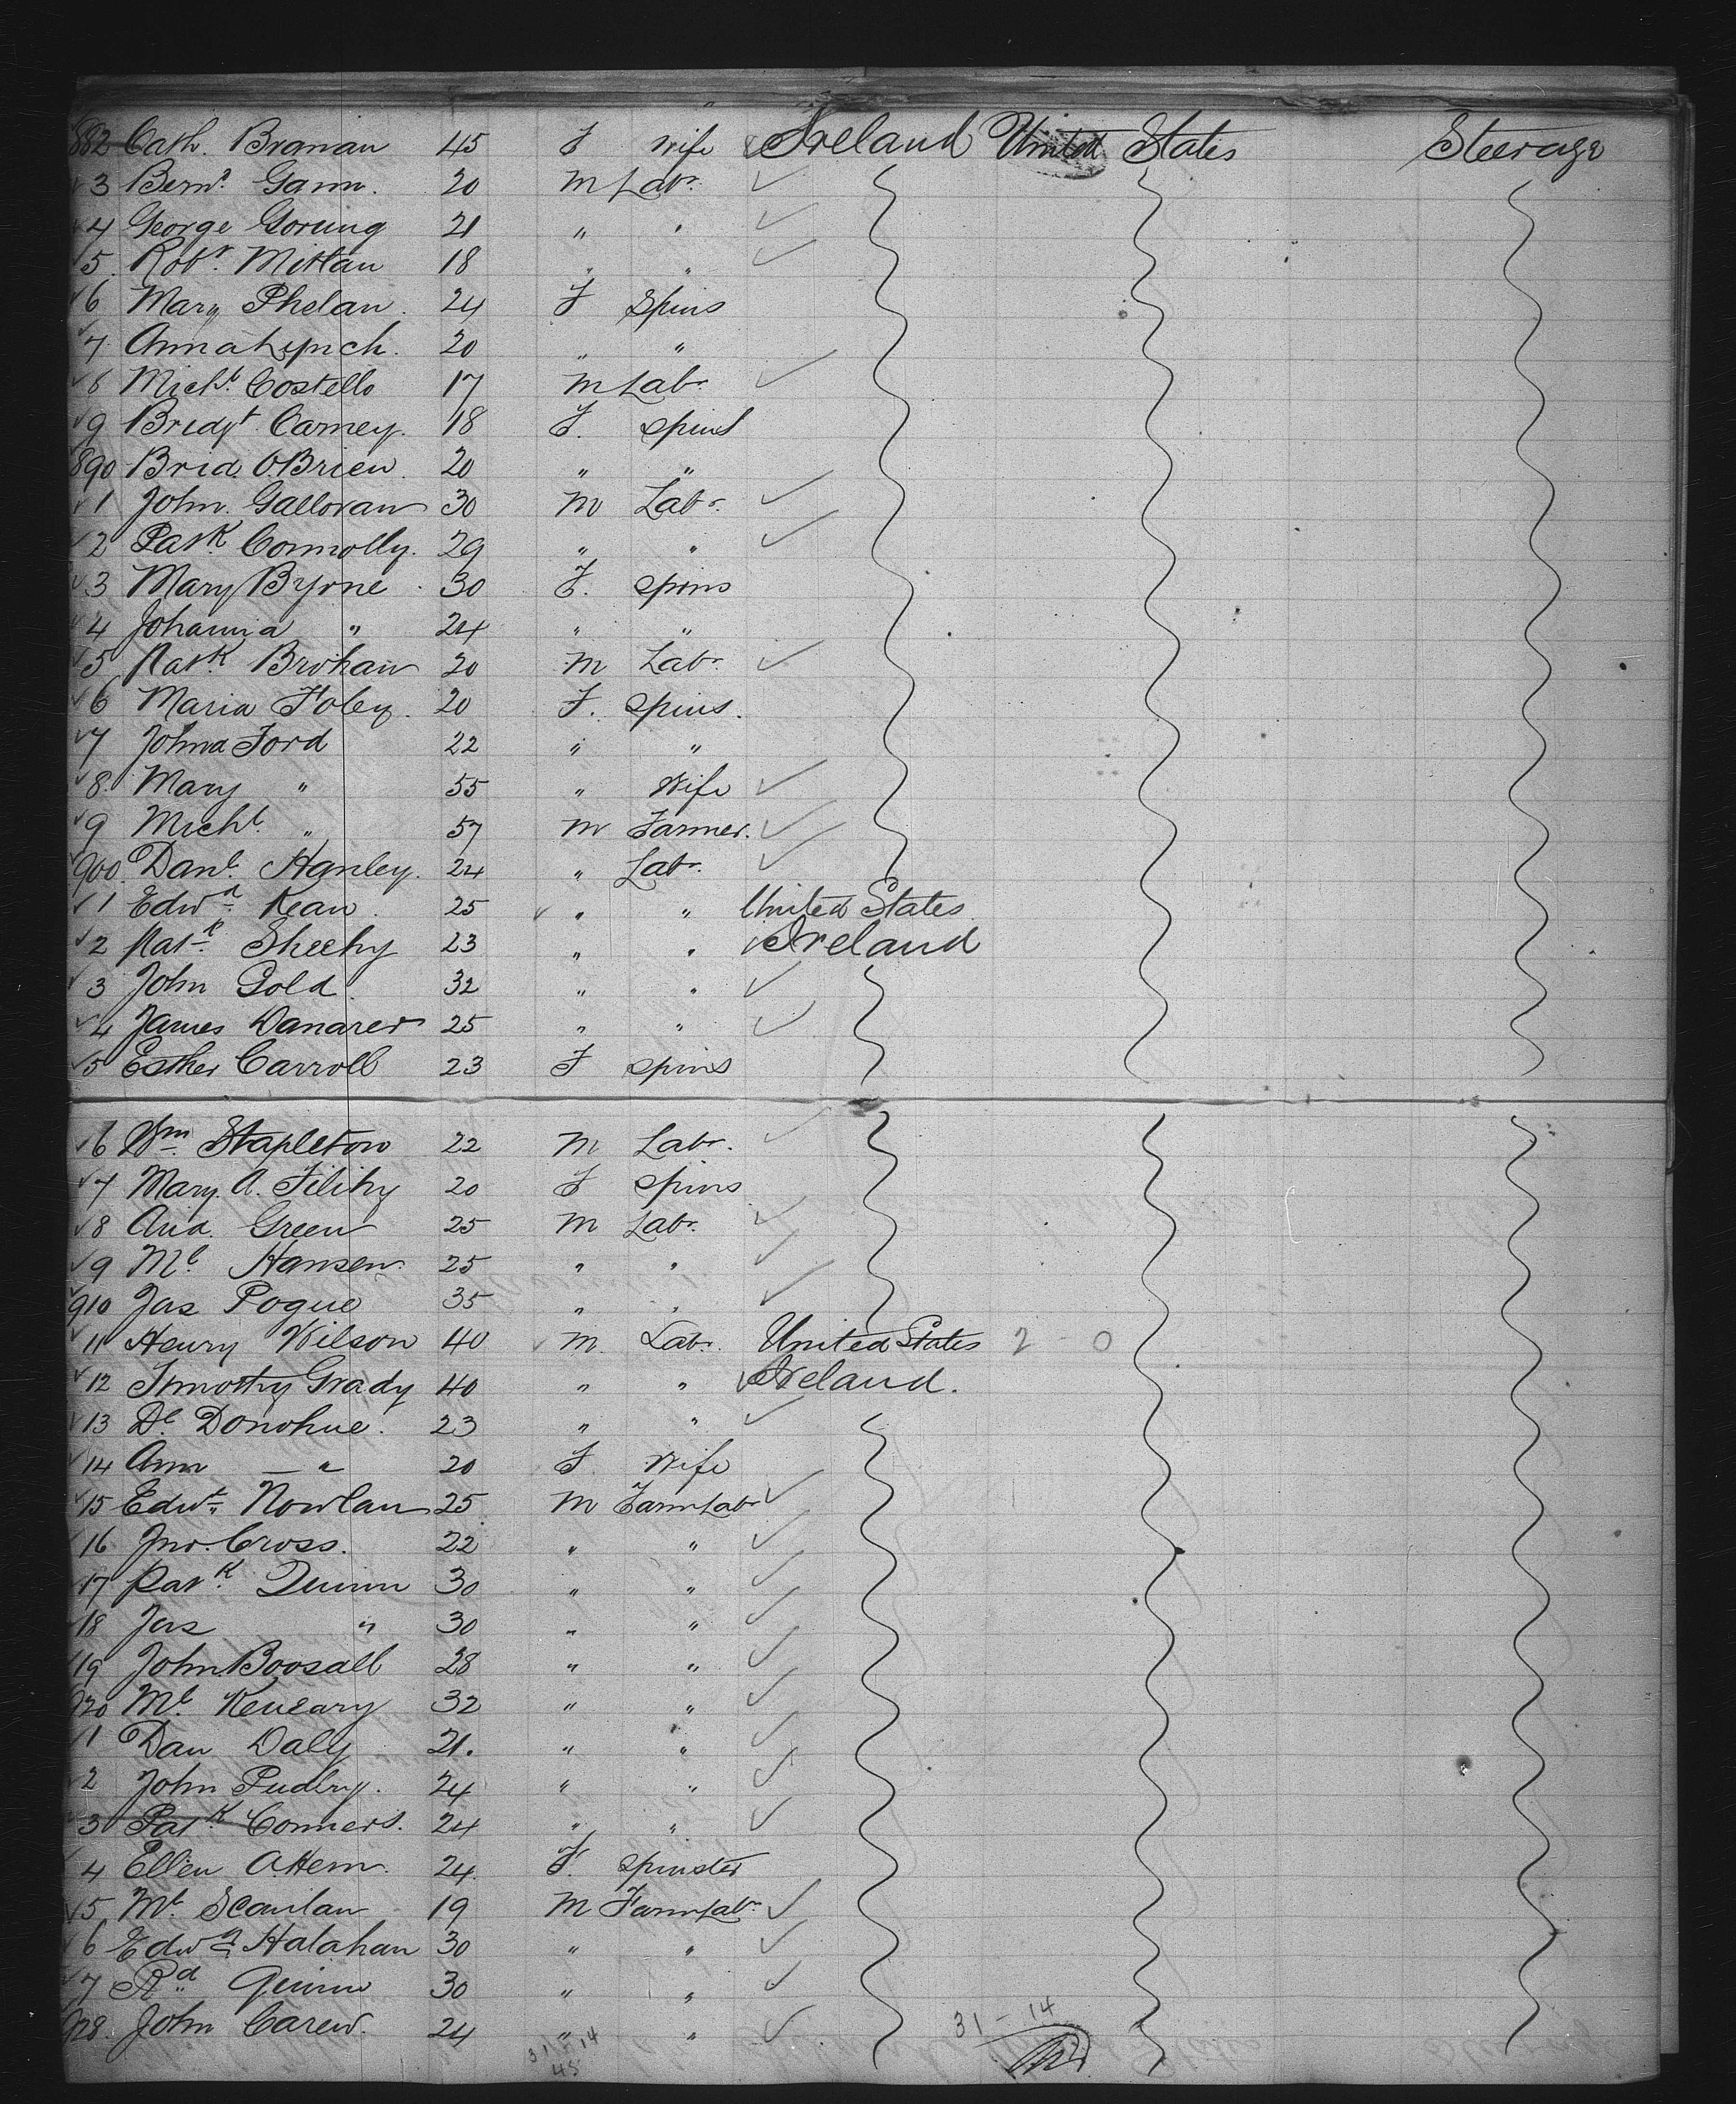 882 Cath. Branan 45 F Wife Ireland United States Steerage
3 Bernd. Gann. 20 M Labr.
4 George Gorung 21 " "
5. Robt. Mittan 18 " "
6 Mary Phelan. 24 F Spins
7 Anna Lynch. 20 " "
8 Michl. Costello 17 M Labr.
9 Bridgt. Carney. 18 F. Spins
890 Brid. O'Brien. 20 " "
1 John. Galloran 30 M Labr.
2 Patk. Connolly. 29 " "
3 Mary Byrne 30 F. Spins
4 Johanna " 24 " "
5 Patk. Brohan 20 M Labr.
6 Maria Foley. 20 F. Spins.
7 Johna Ford 22 " "
8. Mary " 55 " Wife
9 Michl. " 57 M Farmer.
900. Danl. Hanley. 24 " Labr.
1 Edwd. Kean. 25 " " United States
2 Patk. Sheehy 23 " " Ireland
3 John Gold. 32 " "
4 James 25 " "
5 Esther Carroll 23 F Spins
6 Wm. Stapleton 22 M Labr.
7 Mary. A. Filihy 20 F Spins
8 And. Green 25 M Labr.
9 Ml. Hansen. 25 " "
910 Jas Pogue 35 " "
11 Henry Wilson 40 M. Labr. United States 2 - 0
12 Timothy Grady 40 " " Ireland.
13 Dl. Donohue. 23 " "
14 Ann — " 20 F Wife
15 Edwd. Nowlan 25 M Farm Labr
16 Jno. Cross. 22 " "
17 Patk. Quinn 30 " "
18 Jas " 30 " "
19 John Boosall 28 " "
920 Ml. Keneary 32 " "
1 Dan Daly 21. " "
2 John Pudby. 24 " "
3 Patk. Conners. 24 " "
4 Ellen Ahern. 24. F. Spinster
5 Ml. Scanlan 19 M Farm Labr.
6 Edwd. Halahan 30 " "
7 Rd. Quinn 30 " "
928. John Carew. 24 " "
31 - 14
31 - 14
45